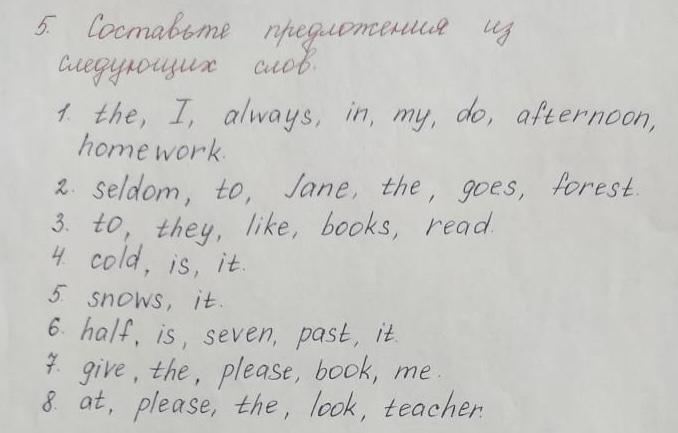 5. Составьте предложения из
следующих слов.
1. the, I, always, in, my, do, afternoon,
homework.
2. seldom, to, Jane, the, goes, forest.
3. to, they, like, books, read.
4. cold, is, it.
5. snows, it.
6. half, is, seven, past, it.
7. give, the, please, book, me.
8. at, please, the, look, teacher.